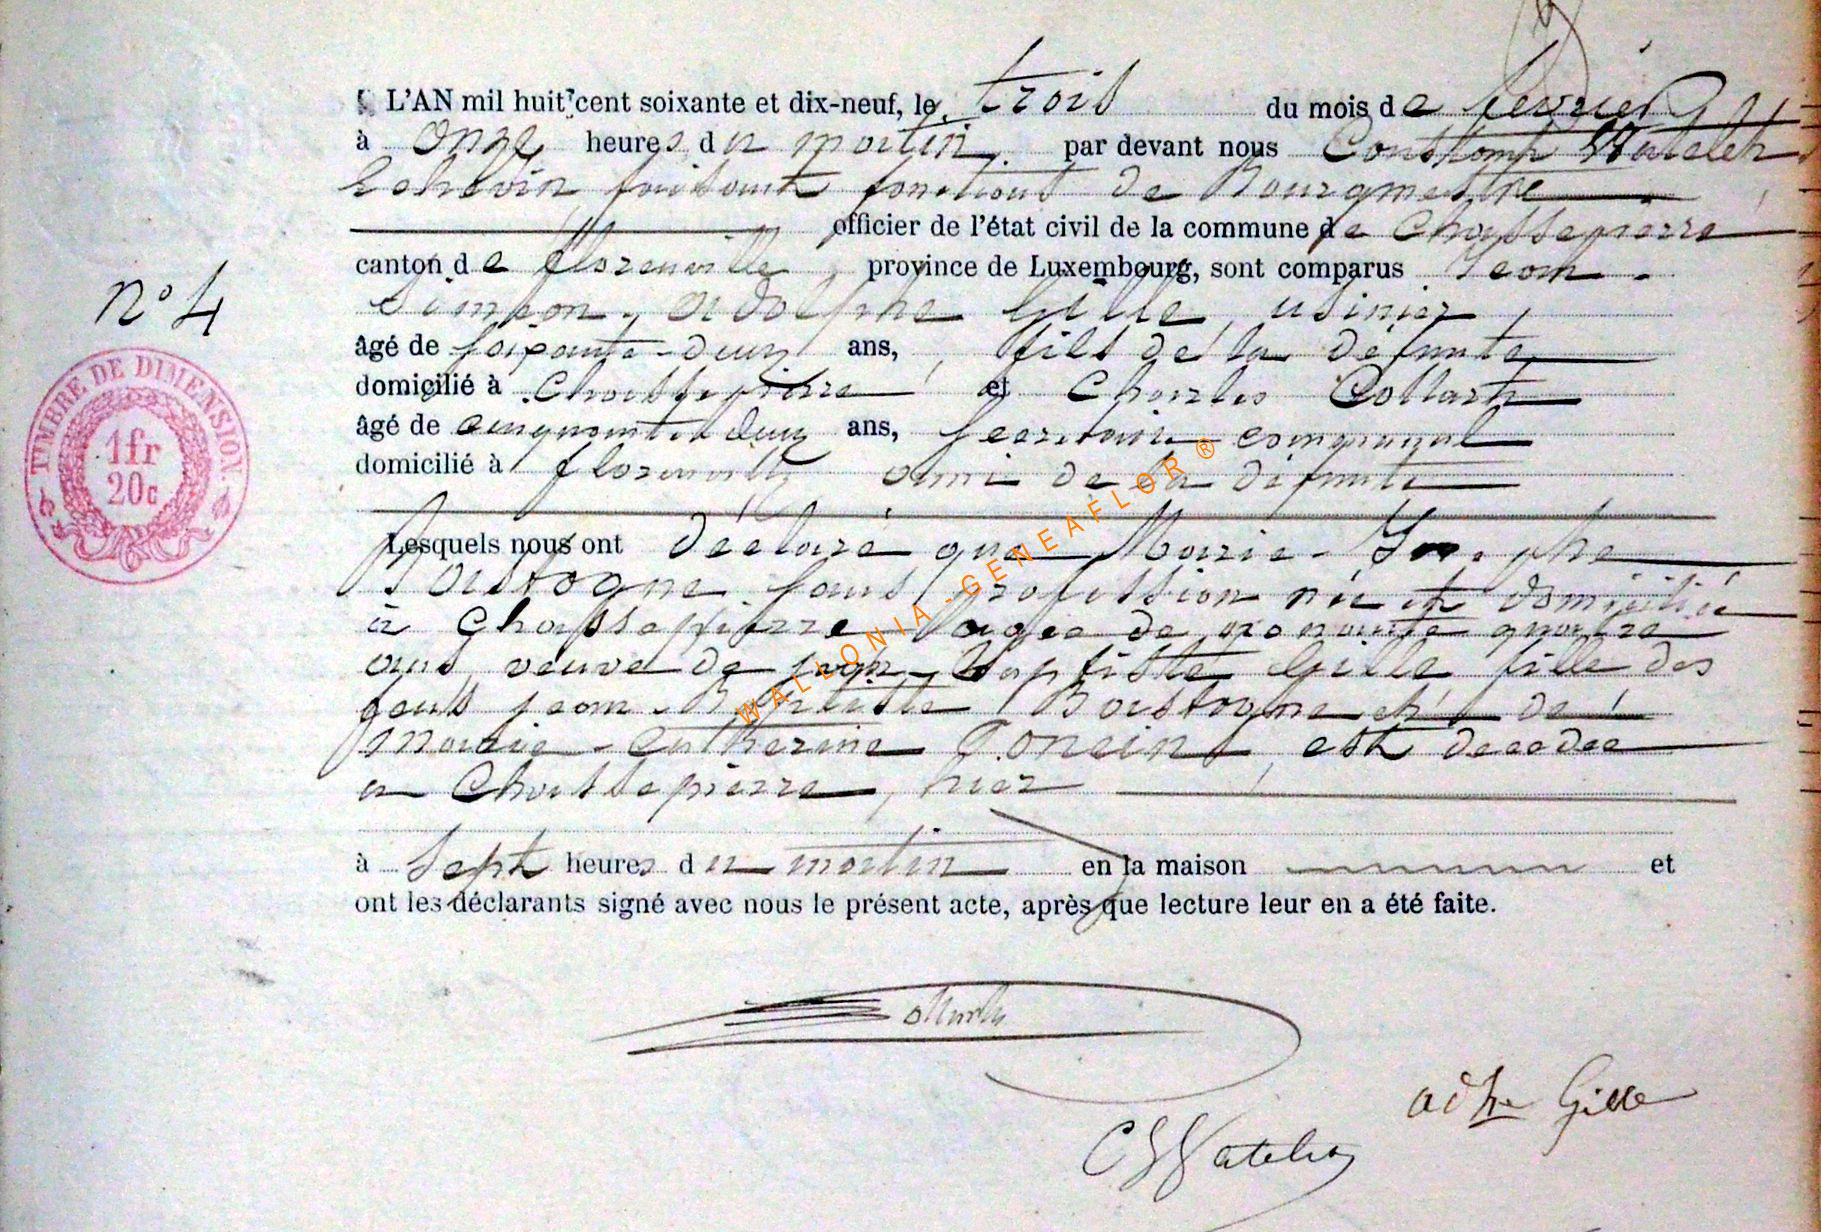 L'AN mil huit cent soixante et dix-neuf, le trois du mois de février
à onze heures du matin par devant nous Constant Watelet
Echevin faisant fonctions de Bourgmestre
officier de l'état civil de la commune de Chassepierre
canton de florenville, province de Luxembourg, sont comparus Jean-
Siméon-Adolphe Gille, usinier,
âgé de soixante-deux ans, fils de la défunte
domicilié à Chassepierre et Charles Collart
âgé de cinquante deux ans, secrétaire communal
domicilié à florenville ami de la défunte
n° 4
TIMBRE DE DIMENSION.
1 fr
20c
Lesquels nous ont déclaré que Marie-Josephe
Bastogne sans profession née et domiciliée
à Chassepierre agée de nonante quatre
ans veuve de jean-Baptiste Gille fille des
feus jean-Baptiste Bastogne et de
marie-Catherine Poncin, est decedée
a Chassepierre, hier
à sept heures du matin en la maison et
ont les déclarants signé avec nous le présent acte, après que lecture leur en a été faite.
WALLONIA-GENEAFLOR®
Collart
adphe Gille
C Watelet